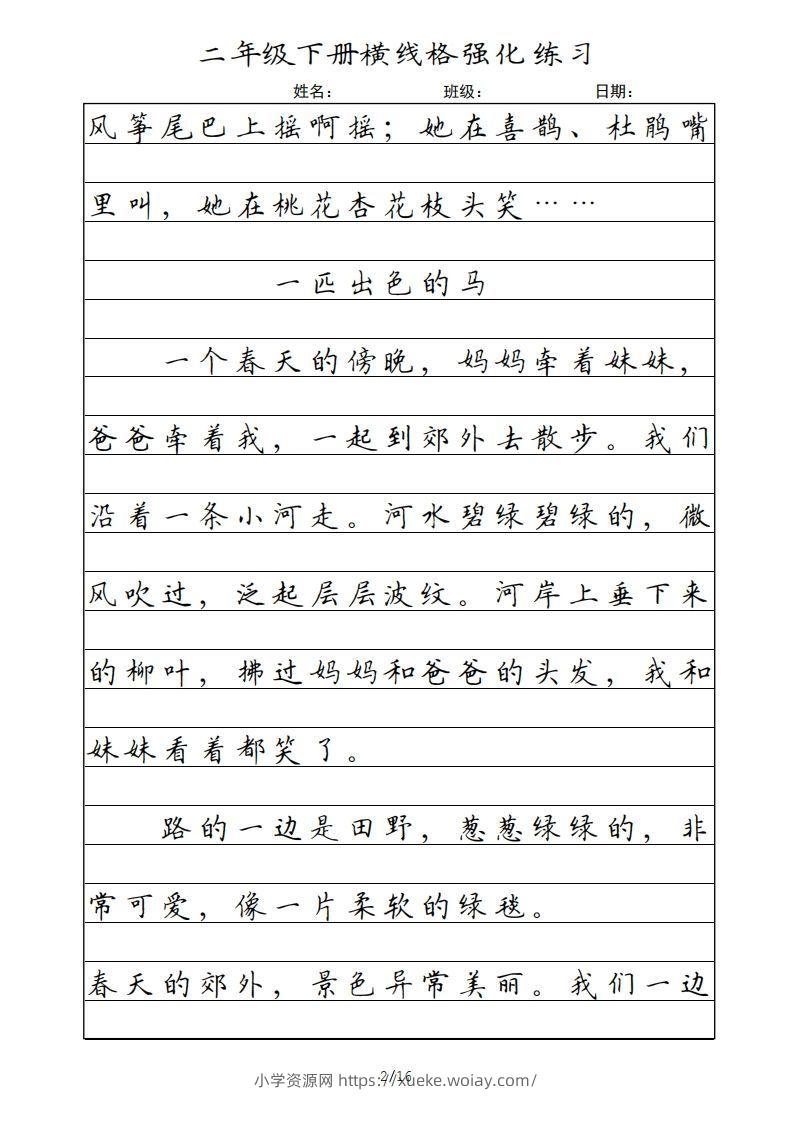 二年级下册横线格强化练习
姓名： 班级： 日期：
风筝尾巴上摇啊摇；她在喜鹊、杜鹃嘴
里叫，她在桃花杏花枝头笑……
一匹出色的马
一个春天的傍晚，妈妈牵着妹妹，
爸爸牵着我，一起到郊外去散步。我们
沿着一条小河走。河水碧绿碧绿的，微
风吹过，泛起层层波纹。河岸上垂下来
的柳叶，拂过妈妈和爸爸的头发，我和
妹妹看着都笑了。
路的一边是田野，葱葱绿绿的，非
常可爱，像一片柔软的绿毯。
春天的郊外，景色异常美丽。我们一边
2/16
小学资源网 https://xueke.woiay.com/